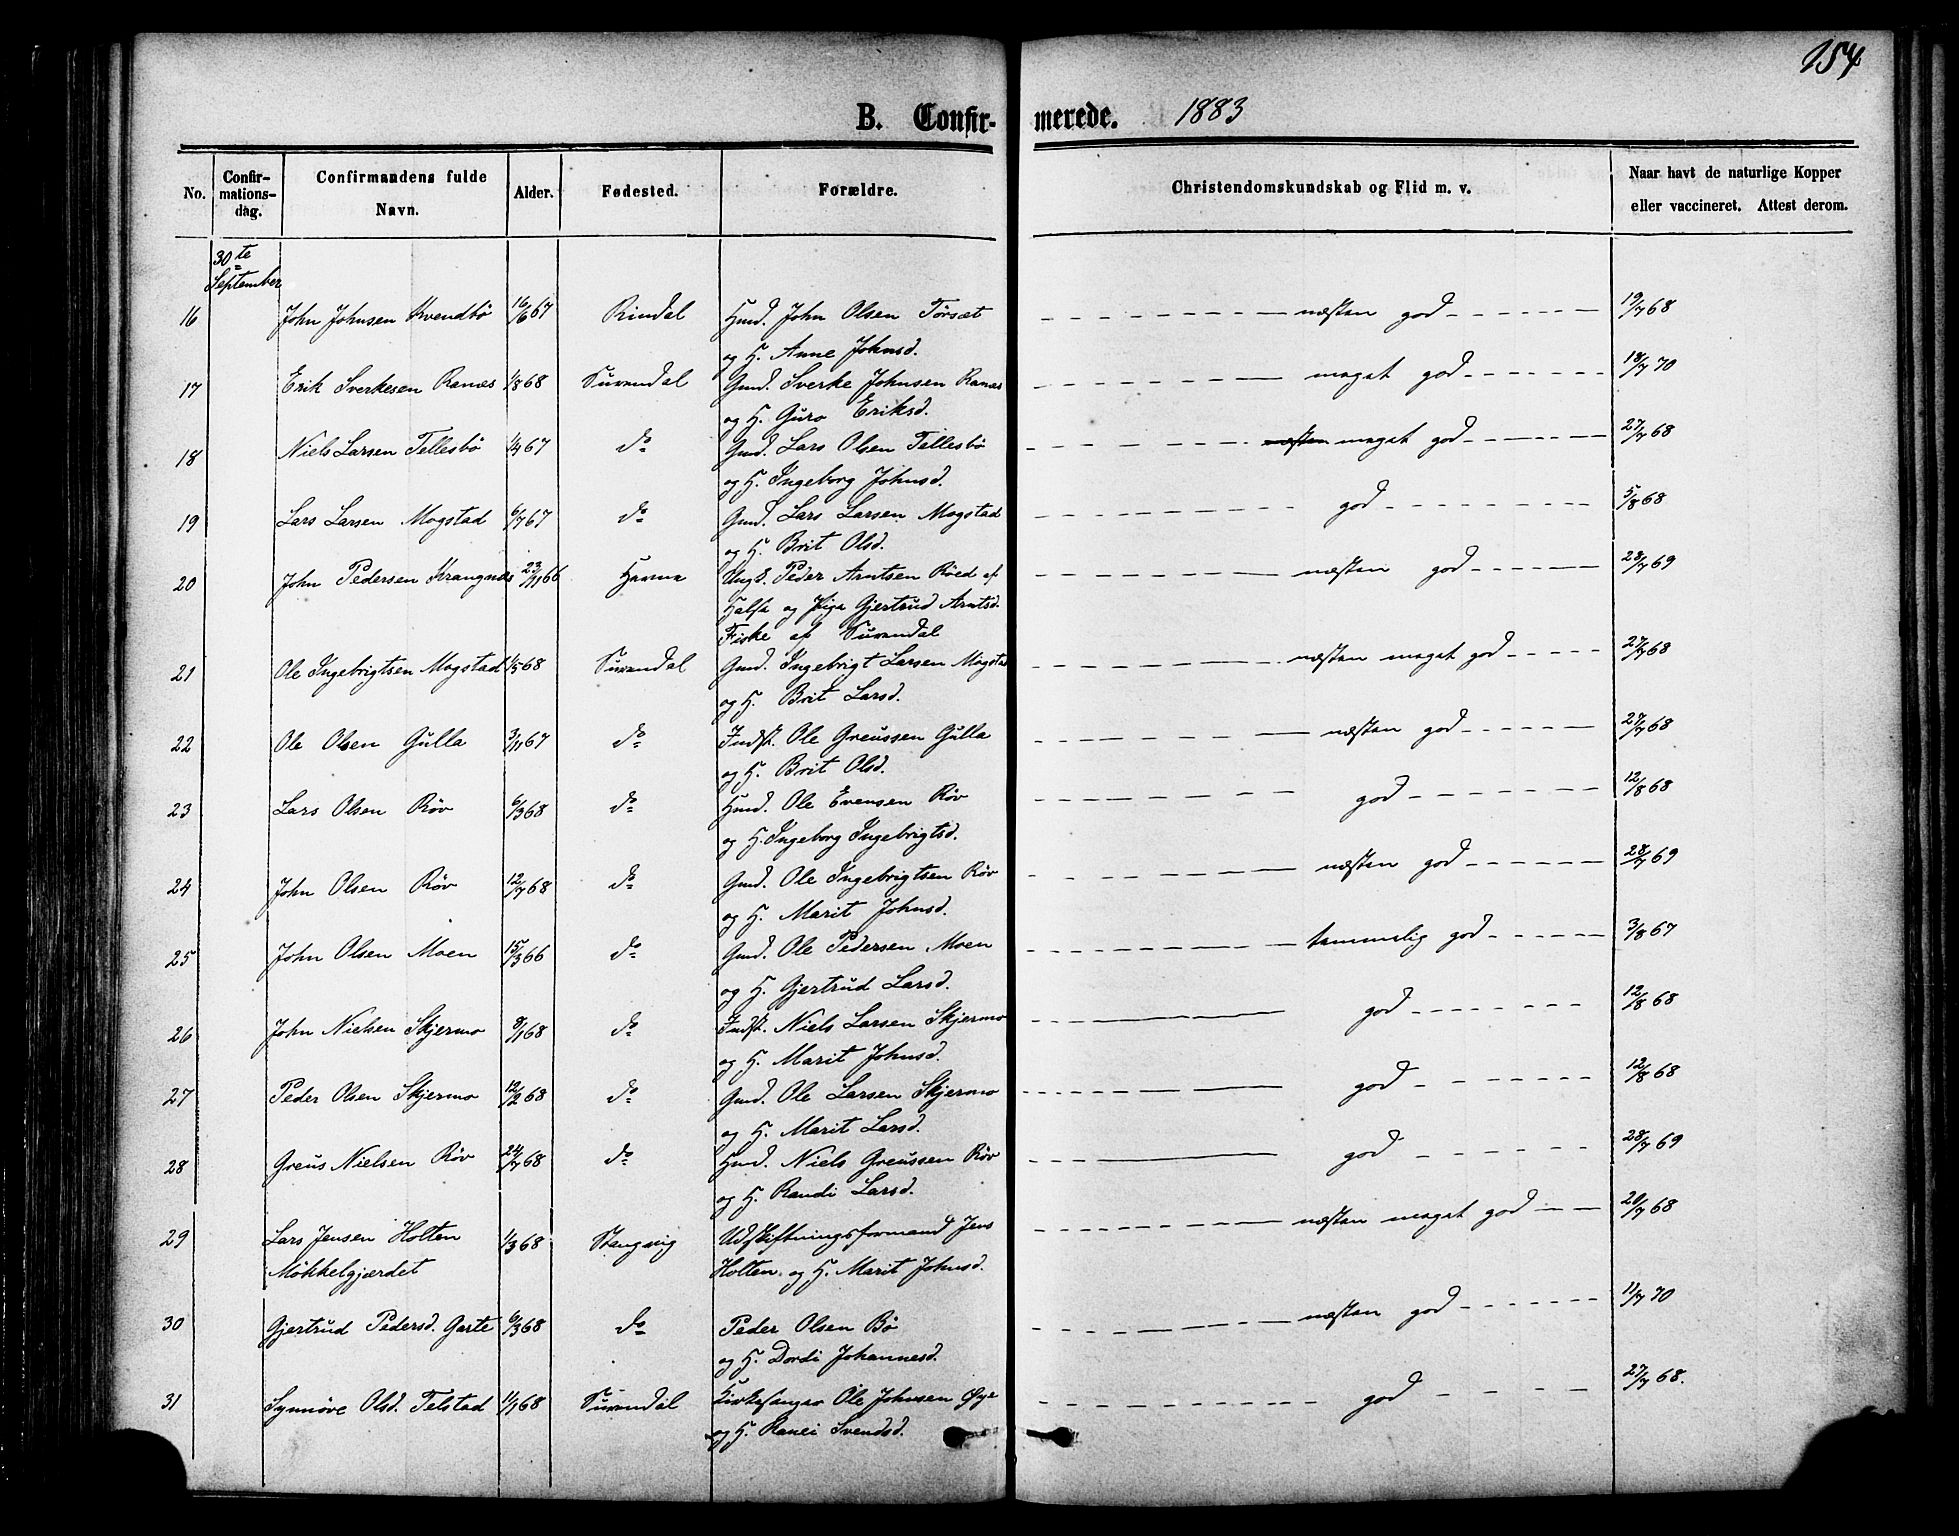 154
B. Confirmerede. 1883
No. Confirmationsdag. Confirmandens fulde Navn. Alder. Fødested. Forældre. Christendomskundskab og Flid m. v. Naar havt de naturlige Kopper eller vaccineret. Attest derom.
30te September
16 John Johnsen Kvendbø 16/6 67 Rindal Gmd. John Olsen Tørsæt næsten god 19/7 68
og H. Anne Johnsd.
17 Erik Sverkesen Ranæs 1/8 68 Surendal Gmd. Sverke Johnsen Ranæs meget god 18/7 70
og H. Guro Eriksd.
18 Niels Larsen Tellesbø 67 do Gmd. Lars Olsen Tellesbø næsten meget god 27/7 68
og H. Ingeborg Johnsd.
19 Lars Larsen Mogstad 6/7 67 do Gmd. Lars Larsen Mogstad god 5/8 68
og H. Brit Olsd.
20 John Pedersen Krangnæs 23/11 66 Ungk. Peder Arntsen Røed af næsten god 28/7 69
Halsa og Pige Gjertrud Arntsd.
Fiske af Surendal
21 Ole Ingebrigtsen Mogstad 1/5 68 Surendal Gmd. Ingebrigt Larsen Mogstad næsten meget god 27/7 68
og H. Brit Larsd.
22 Ole Olsen Gulla 3/11 67 do Indst. Ole Greussen Gulla næsten god 27/7 68
og H. Brit Olsd.
23 Lars Olsen Røv 6/3 68 do Hmd. Ole Evensen Røv god 12/8 68
og H. Ingeborg Ingebrigtsd.
24 John Olsen Røv 12/7 68 do Gmd. Ole Ingebrigtsen Røv næsten god 28/7 69
og H. Marit Johnsd.
25 John Olsen Moen 15/3 66 do Gmd. Ole Pedersen Moen temmelig god 3/8 67
og H. Gjertrud Larsd.
26 John Nielsen Skjermo 8/1 68 do Indst. Niels Larsen Skjermo god 12/8 68
og H. Marit Johnsd.
27 Peder Olsen Skjermo 12/2 68 do Gmd. Ole Larsen Skjermo god 12/8 68
og H. Marit Larsd.
28 Greus Nielsen Røv 24/7 68 do Hmd. Niels Greussen Røv god 28/7 69
og H. Randi Larsd.
29 Lars Jensen Holten 1/3 68 Stangvig Udskiftningsformand Jens næsten meget god 20/7 68
Møkkelgjærdet Holten og H. Marit Johnsd.
30 Gjertrud Pedersd. Garte 6/3 68 do Peder Olsen Bø næsten god 11/7 70
og H. Dordi Johannesd.
31 Synnøve Olsd. Telstad 11/1 68 Surendal Kirkesanger Ole Johnsen Øye god 27/7 68.
og H. Ranei Svendsd.